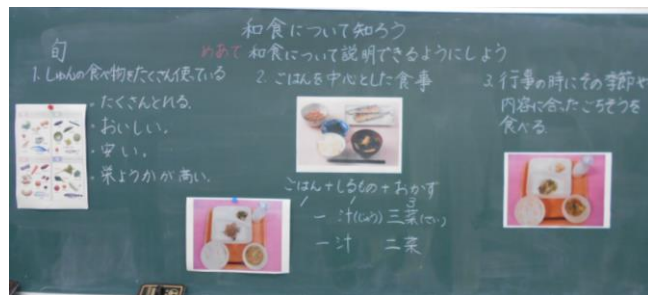 和食について知ろう
旬
めあて 和食について説明できるようにしよう
1. しゅんの食べ物をたくさん使っている
・たくさんとれる。
・おいしい。
・安い。
・栄ようかが高い。
2. ごはんを中心とした食事
ごはん+しるもの+おかず
3
一汁(じゅう)三菜(さい)
一汁 二菜
3. 行事の時にその季節や
内容に合ったごちそうを
食べる